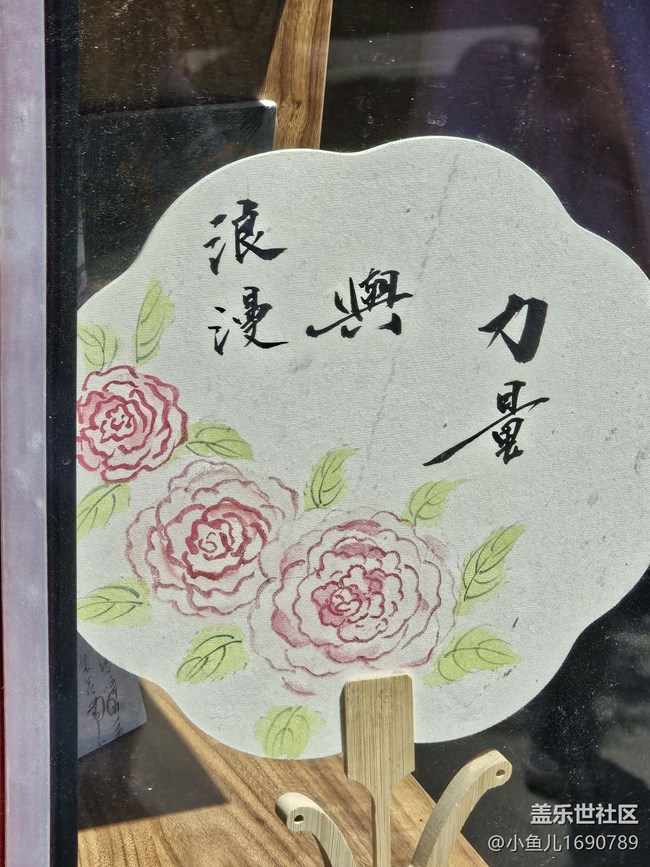 浪漫
與
力量
盖乐世社区
@小鱼儿1690789